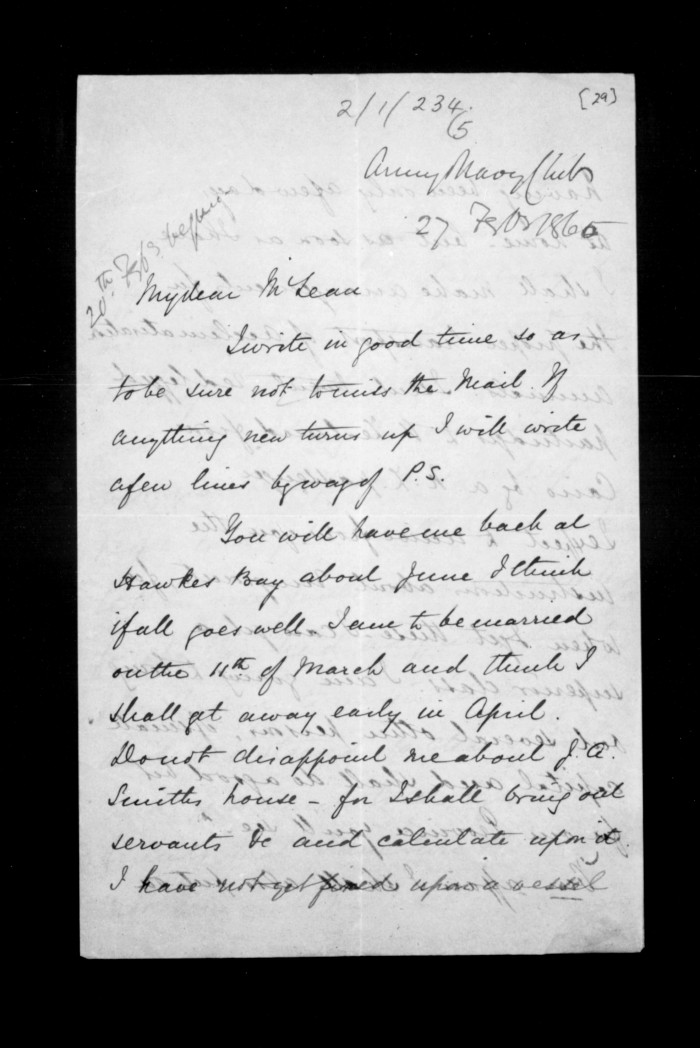 [29]
2/1/234
/5
Army Navy Club
27 Feb 1865
20th Feb
My dear McLean
I write in good time so as
to be sure not to miss the Mail. If
anything new turns up I will write
a few lines by way of P.S.
You will have me back at
Hawkes Bay about June I think
if all goes well. I am to be married
on the 11th of March and think I
shall get away early in April.
Do not disappoint me about J. A.
Smiths house – for I shall bring out
servants &c and calculate upon it.
I have not yet fixed upon a vessel